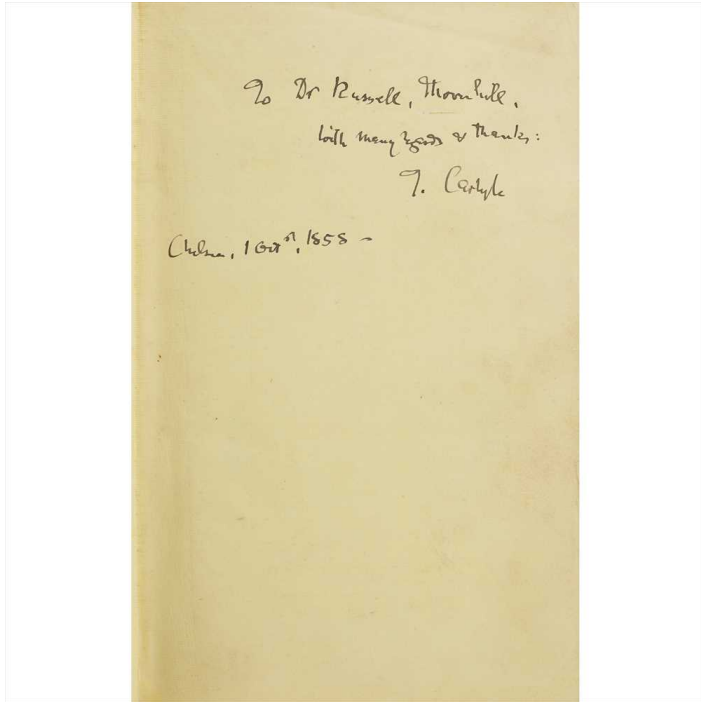 To Dr Russell, Thornhill,
with many regards & thanks:
T. Carlyle
Chelsea, 1 Octr, 1858 –